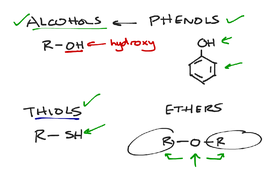 ALCOHOLS ← PHENOLS
R-OH ← hydroxy
OH
THIOLS
R-SH
ETHERS
R-O-R